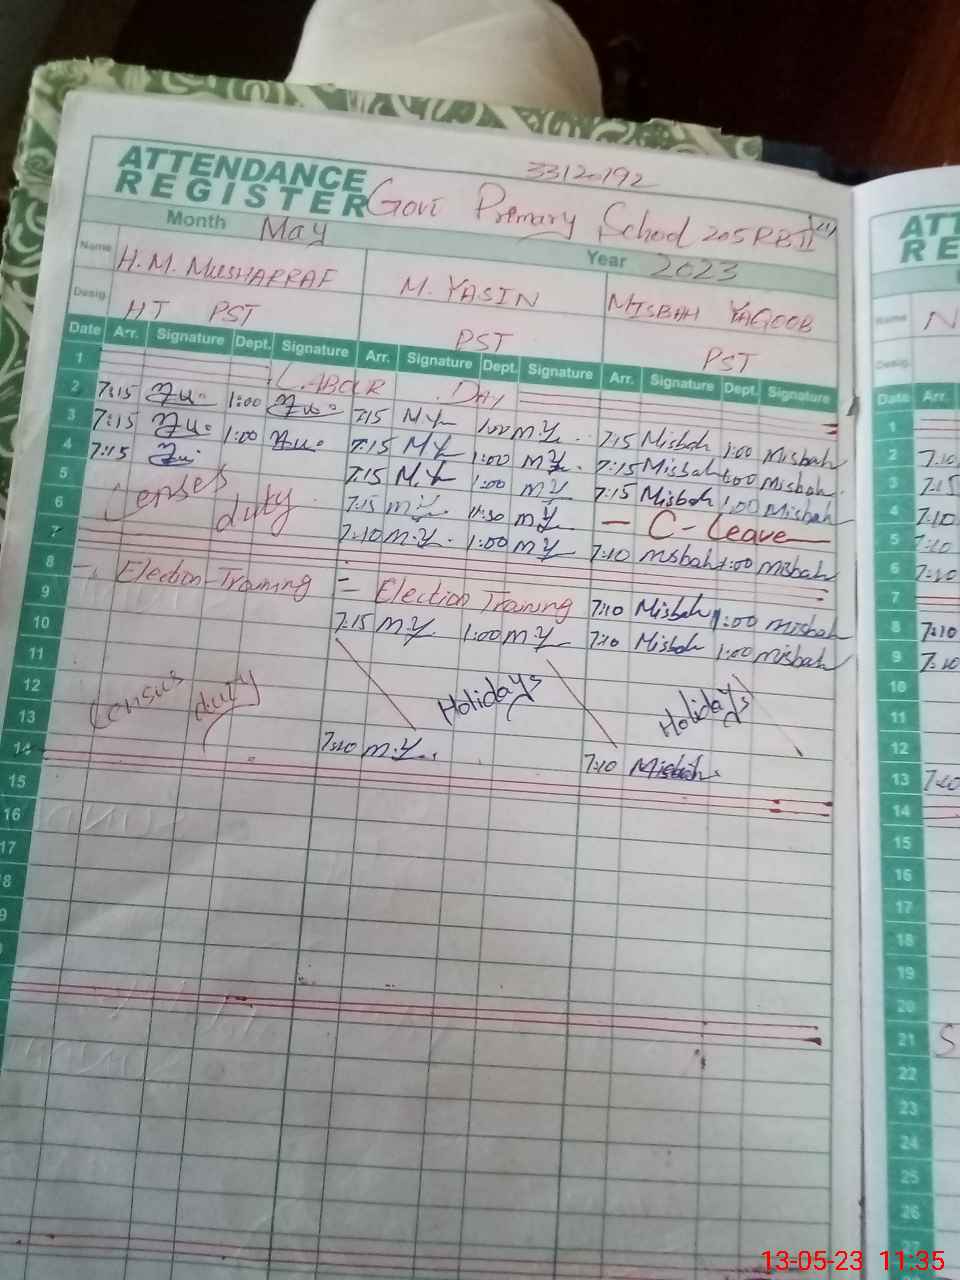 33120192
ATTENDANCE
REGISTER Govt Primary School 205 RB II
Month May Year 2023
Name H.M. MUSHARRAF M. YASIN MISBAH YAQOOB
Desig. HT PST PST PST
Date Arr. Signature Dept. Signature Arr. Signature Dept. Signature Arr. Signature Dept. Signature
1 LABOUR DAY
2 7:15 1:00 7:15 M.Y 1:00 M.Y 7:15 Misbah 1:00 Misbah
3 7:15 1:00 7:15 M.Y 1:00 M.Y 7:15 Misbah 1:00 Misbah
4 7:15 7:15 M.Y 1:00 M.Y 7:15 Misbah 1:00 Misbah
5 Censes duty 7:15 M.Y 11:30 M.Y - C-Leave
6 7:10 M.Y 1:00 M.Y 7:10 Misbah 1:00 Misbah
7
8 -, Election Training - Election Training 7:10 Misbah 1:00 Misbah
9 7:15 M.Y 1:00 M.Y 7:10 Misbah 1:00 Misbah
10
11 Census duty Holidays Holidays
12
13 7:10 M.Y. 7:10 Misbah
14
15
16
17
18
9
21
22
23
24
25
26
27
ATT
RE
Name N
Desig.
Date Arr.
1
2 7:10
3 7:15
4 7:10
5 7:10
6 7:10
7
8 7:10
9 7:10
10
11
12
13 7:10
14
15
16
17
18
19
20
21 S
22
23
24
25
26
27
13-05-23 11:35